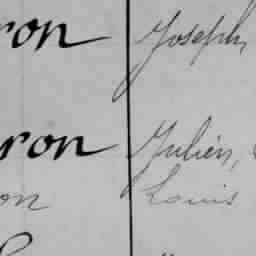 ron Joseph,
ron Julien,
on Louis